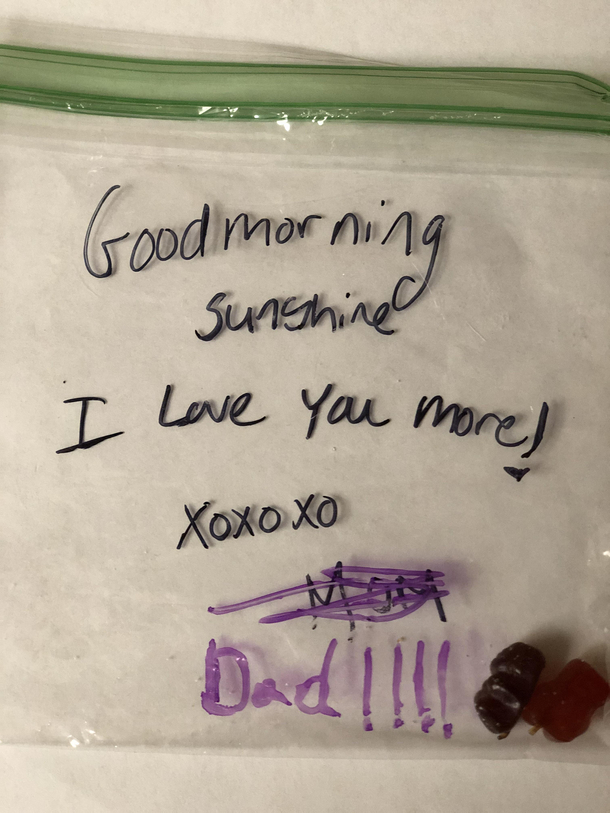 Good morning
sunshine
I Love You more!
XOXOXO
MOM
Dad!!!!